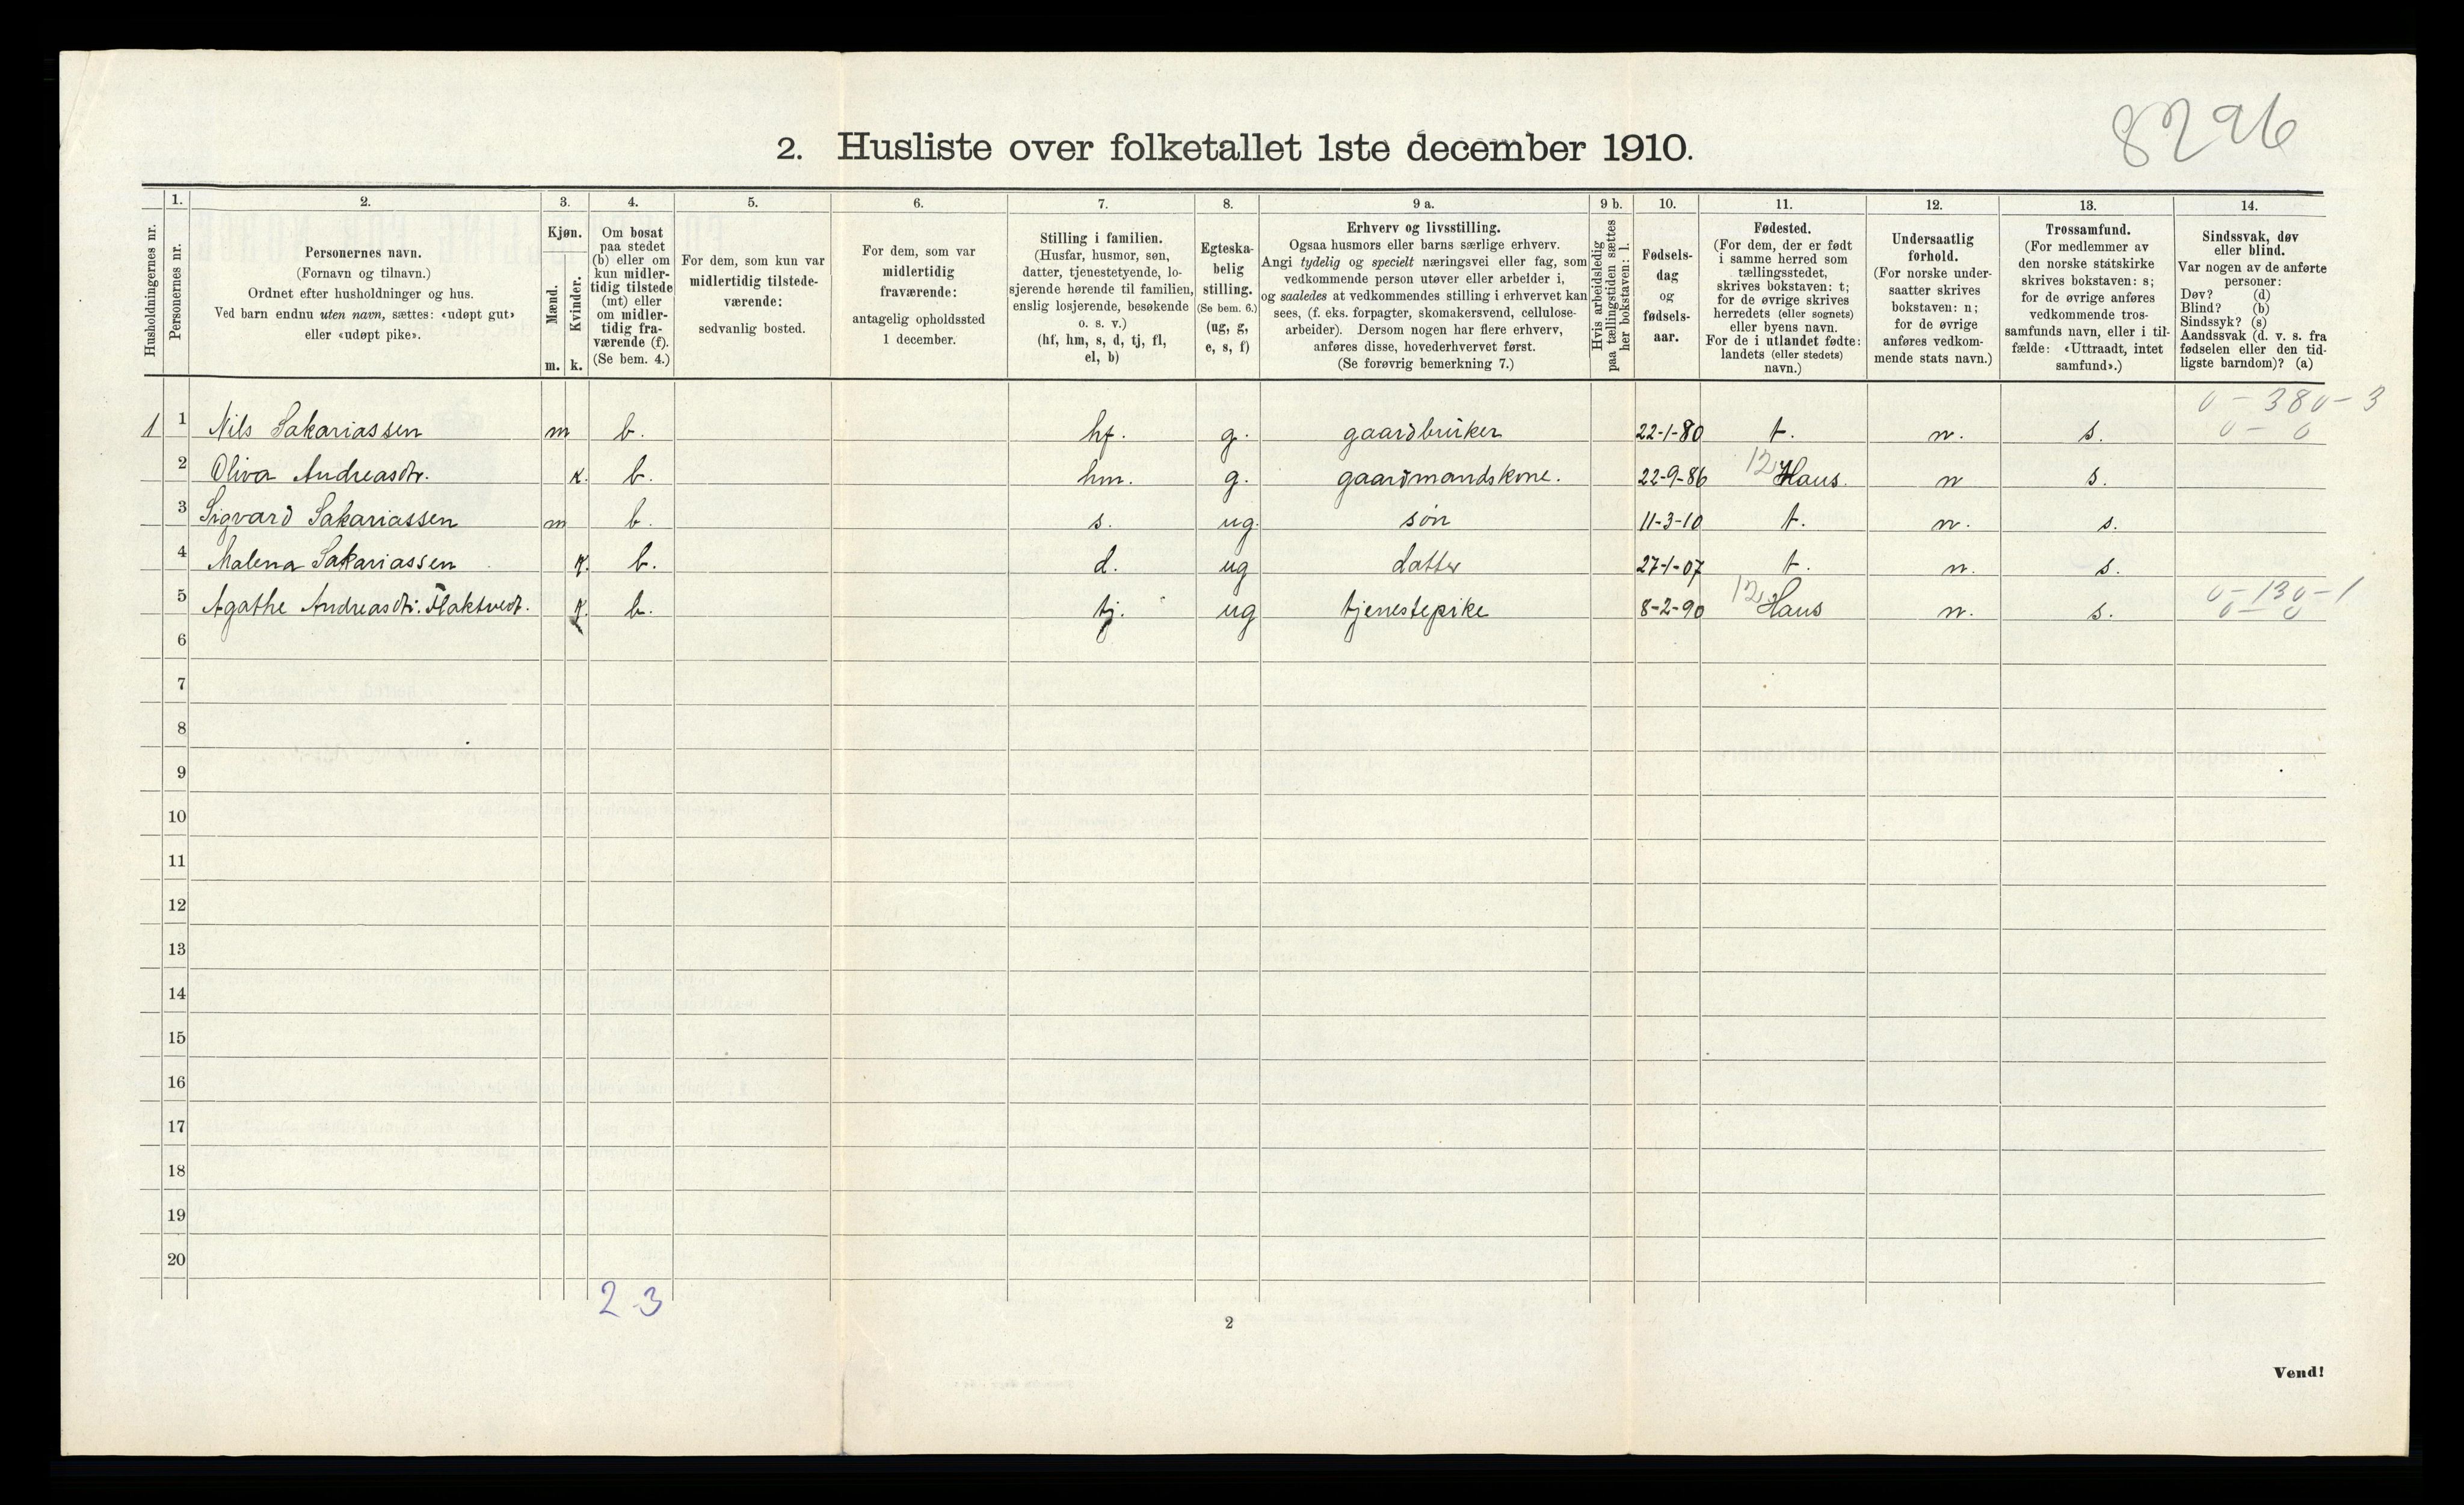 8296
2. Husliste over folketallet 1ste december 1910.
Husholdningernes nr.
1. Personernes nr.
2. Personernes navn.
(Fornavn og tilnavn.)
Ordnet efter husholdninger og hus.
Ved barn endnu uten navn, sættes: «udøpt gut»
eller «udøpt pike».
3. Kjøn.
Mænd. Kvinder.
m. k.
4. Om bosat
paa stedet
(b) eller om
kun midler-
tidig tilstede
(mt) eller
om midler-
tidig fra-
værende (f).
(Se bem. 4.)
5. For dem, som kun var
midlertidig tilstede-
værende:
sedvanlig bosted.
6. For dem, som var
midlertidig
fraværende:
antagelig opholdssted
1 december.
7. Stilling i familien.
(Husfar, husmor, søn,
datter, tjenestetyende, lo-
sjerende hørende til familien,
enslig losjerende, besøkende
o. s. v.)
(hf, hm, s, d, tj, fl,
el, b)
8. Egteska-
belig
stilling.
(Se bem. 6.)
(ug, g,
e, s, f)
9 a. Erhverv og livsstilling.
Ogsaa husmors eller barns særlige erhverv.
Angi tydelig og specielt næringsvei eller fag, som
vedkommende person utøver eller arbeider i,
og saaledes at vedkommendes stilling i erhvervet kan
sees, (f. eks. forpagter, skomakersvend, cellulose-
arbeider). Dersom nogen har flere erhverv,
anføres disse, hovederhvervet først.
(Se forøvrig bemerkning 7.)
9 b. Hvis arbeidsledig
paa tællingstiden sættes
her bokstaven: l.
10. Fødsels-
dag
og
fødsels-
aar.
11. Fødested.
(For dem, der er født
i samme herred som
tællingsstedet,
skrives bokstaven: t;
for de øvrige skrives
herredets (eller sognets)
eller byens navn.
For de i utlandet fødte:
landets (eller stedets)
navn.)
12. Undersaatlig
forhold.
(For norske under-
saatter skrives
bokstaven: n;
for de øvrige
anføres vedkom-
mende stats navn.)
13. Trossamfund.
(For medlemmer av
den norske statskirke
skrives bokstaven: s;
for de øvrige anføres
vedkommende tros-
samfunds navn, eller i til-
fælde: «Uttraadt, intet
samfund».)
14. Sindssvak, døv
eller blind.
Var nogen av de anførte
personer:
Døv? (d)
Blind? (b)
Sindssyk? (s)
Aandssvak (d. v. s. fra
fødselen eller den tid-
ligste barndom)? (a)
0 - 380 - 3
1 1 Nils Sakariassen m b. hf. g. gaardbruker 22-1-80 t. n. s. 0 - 0
2 Oliva Andreasdtr. k. b. hm. g. gaardmandskone. 22-9-86 12 Haus. n s.
3 Sigvard Sakariassen m b. s. ug. søn 11-3-10 t. n. s.
4 Malena Sakariassen k. b. d. ug datter 27-1-07 t. n. s.
0 - 130 - 1
5 Agathe Andreasdtr. Flaktvedt. k. b. tj. ug tjenestepike 8-2-90 12 Haus n. s. 0 - 0
6
7
8
9
10
11
12
13
14
15
16
17
18
19
20
2 3
2
Vend!